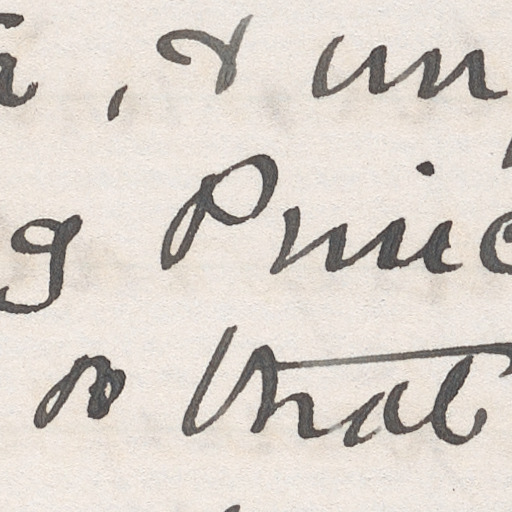 , & un
g Princ
so that